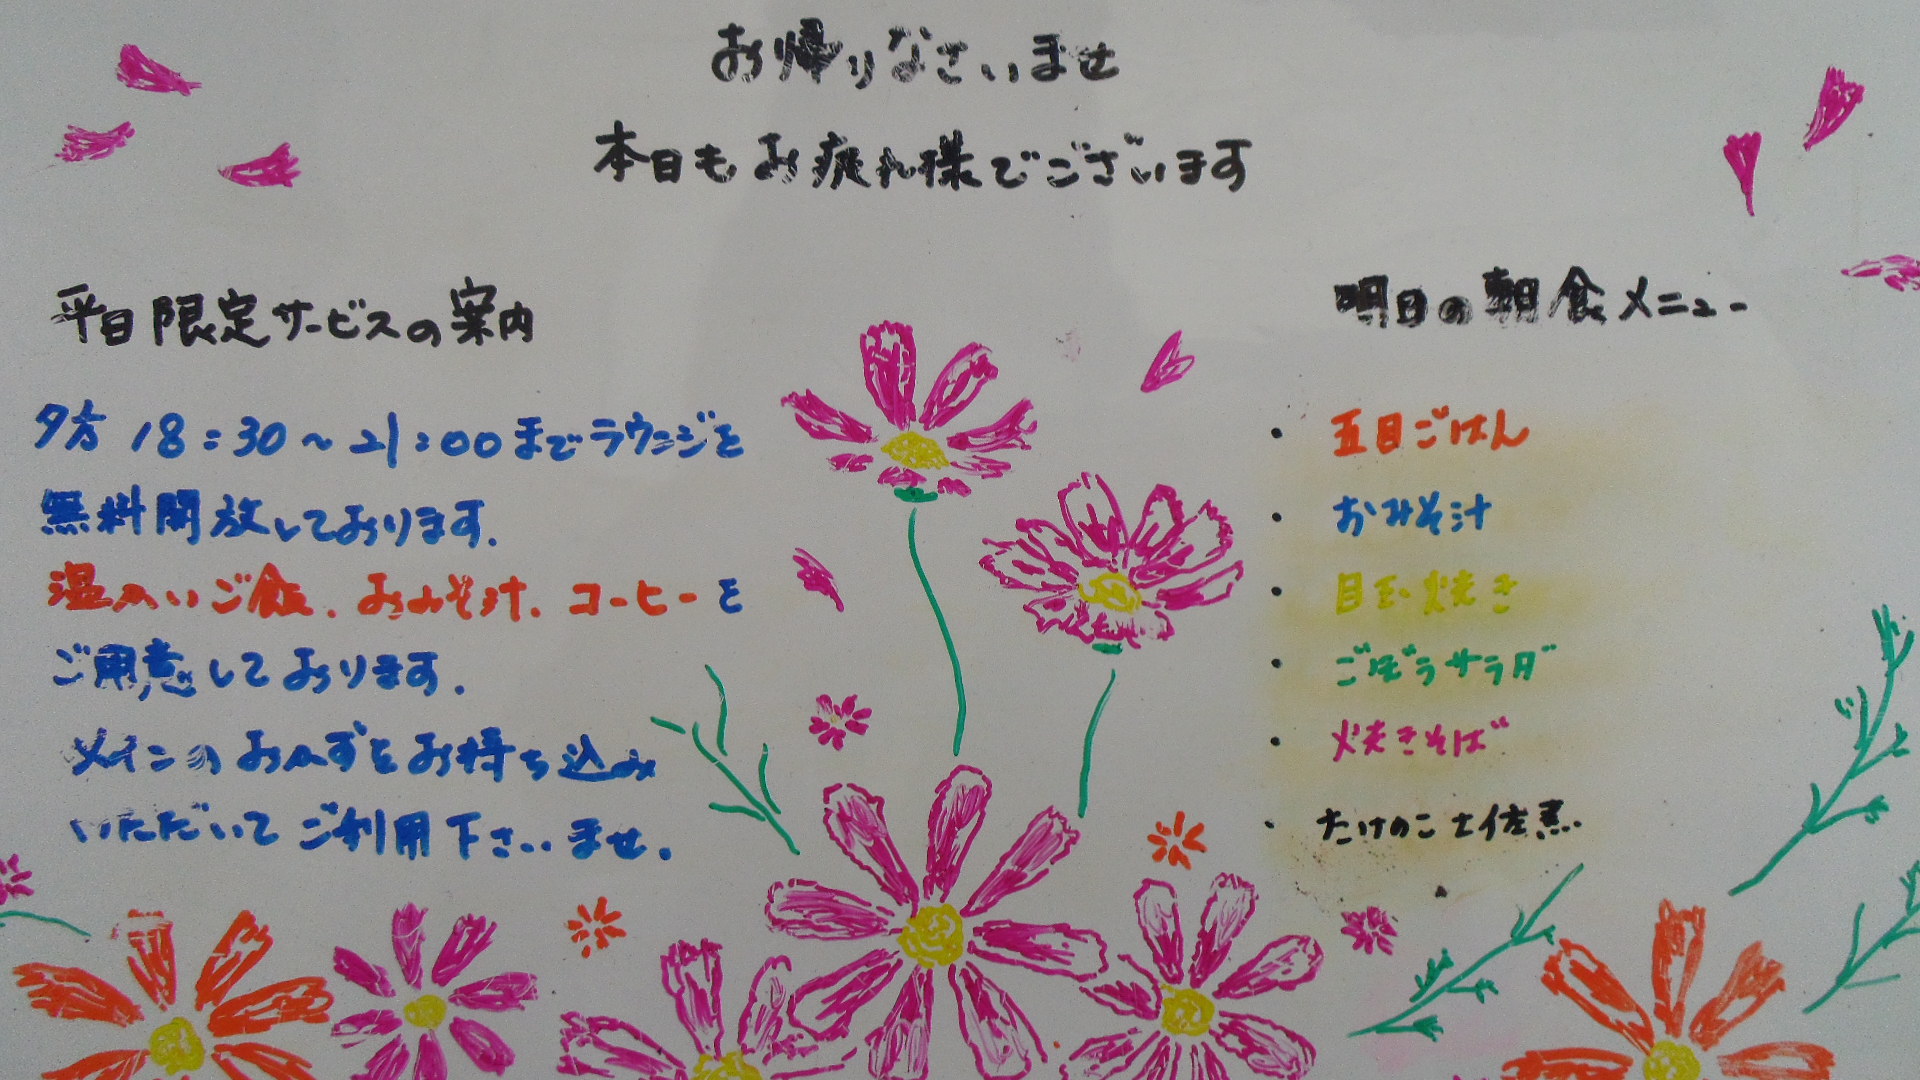 お帰りなさいませ
本日もお疲れ様でございます
平日限定サービスの案内
夕方 18:30～21:00までラウンジを
無料開放しております.
温かいご飯.おみそ汁.コーヒーを
ご用意しております.
メインのおかずをお持ち込み
いただいてご利用下さいませ.
明日の朝食メニュー
・五目ごはん
・おみそ汁
・目玉焼き
・ごぼうサラダ
・焼きそば
・たけのこ土佐煮